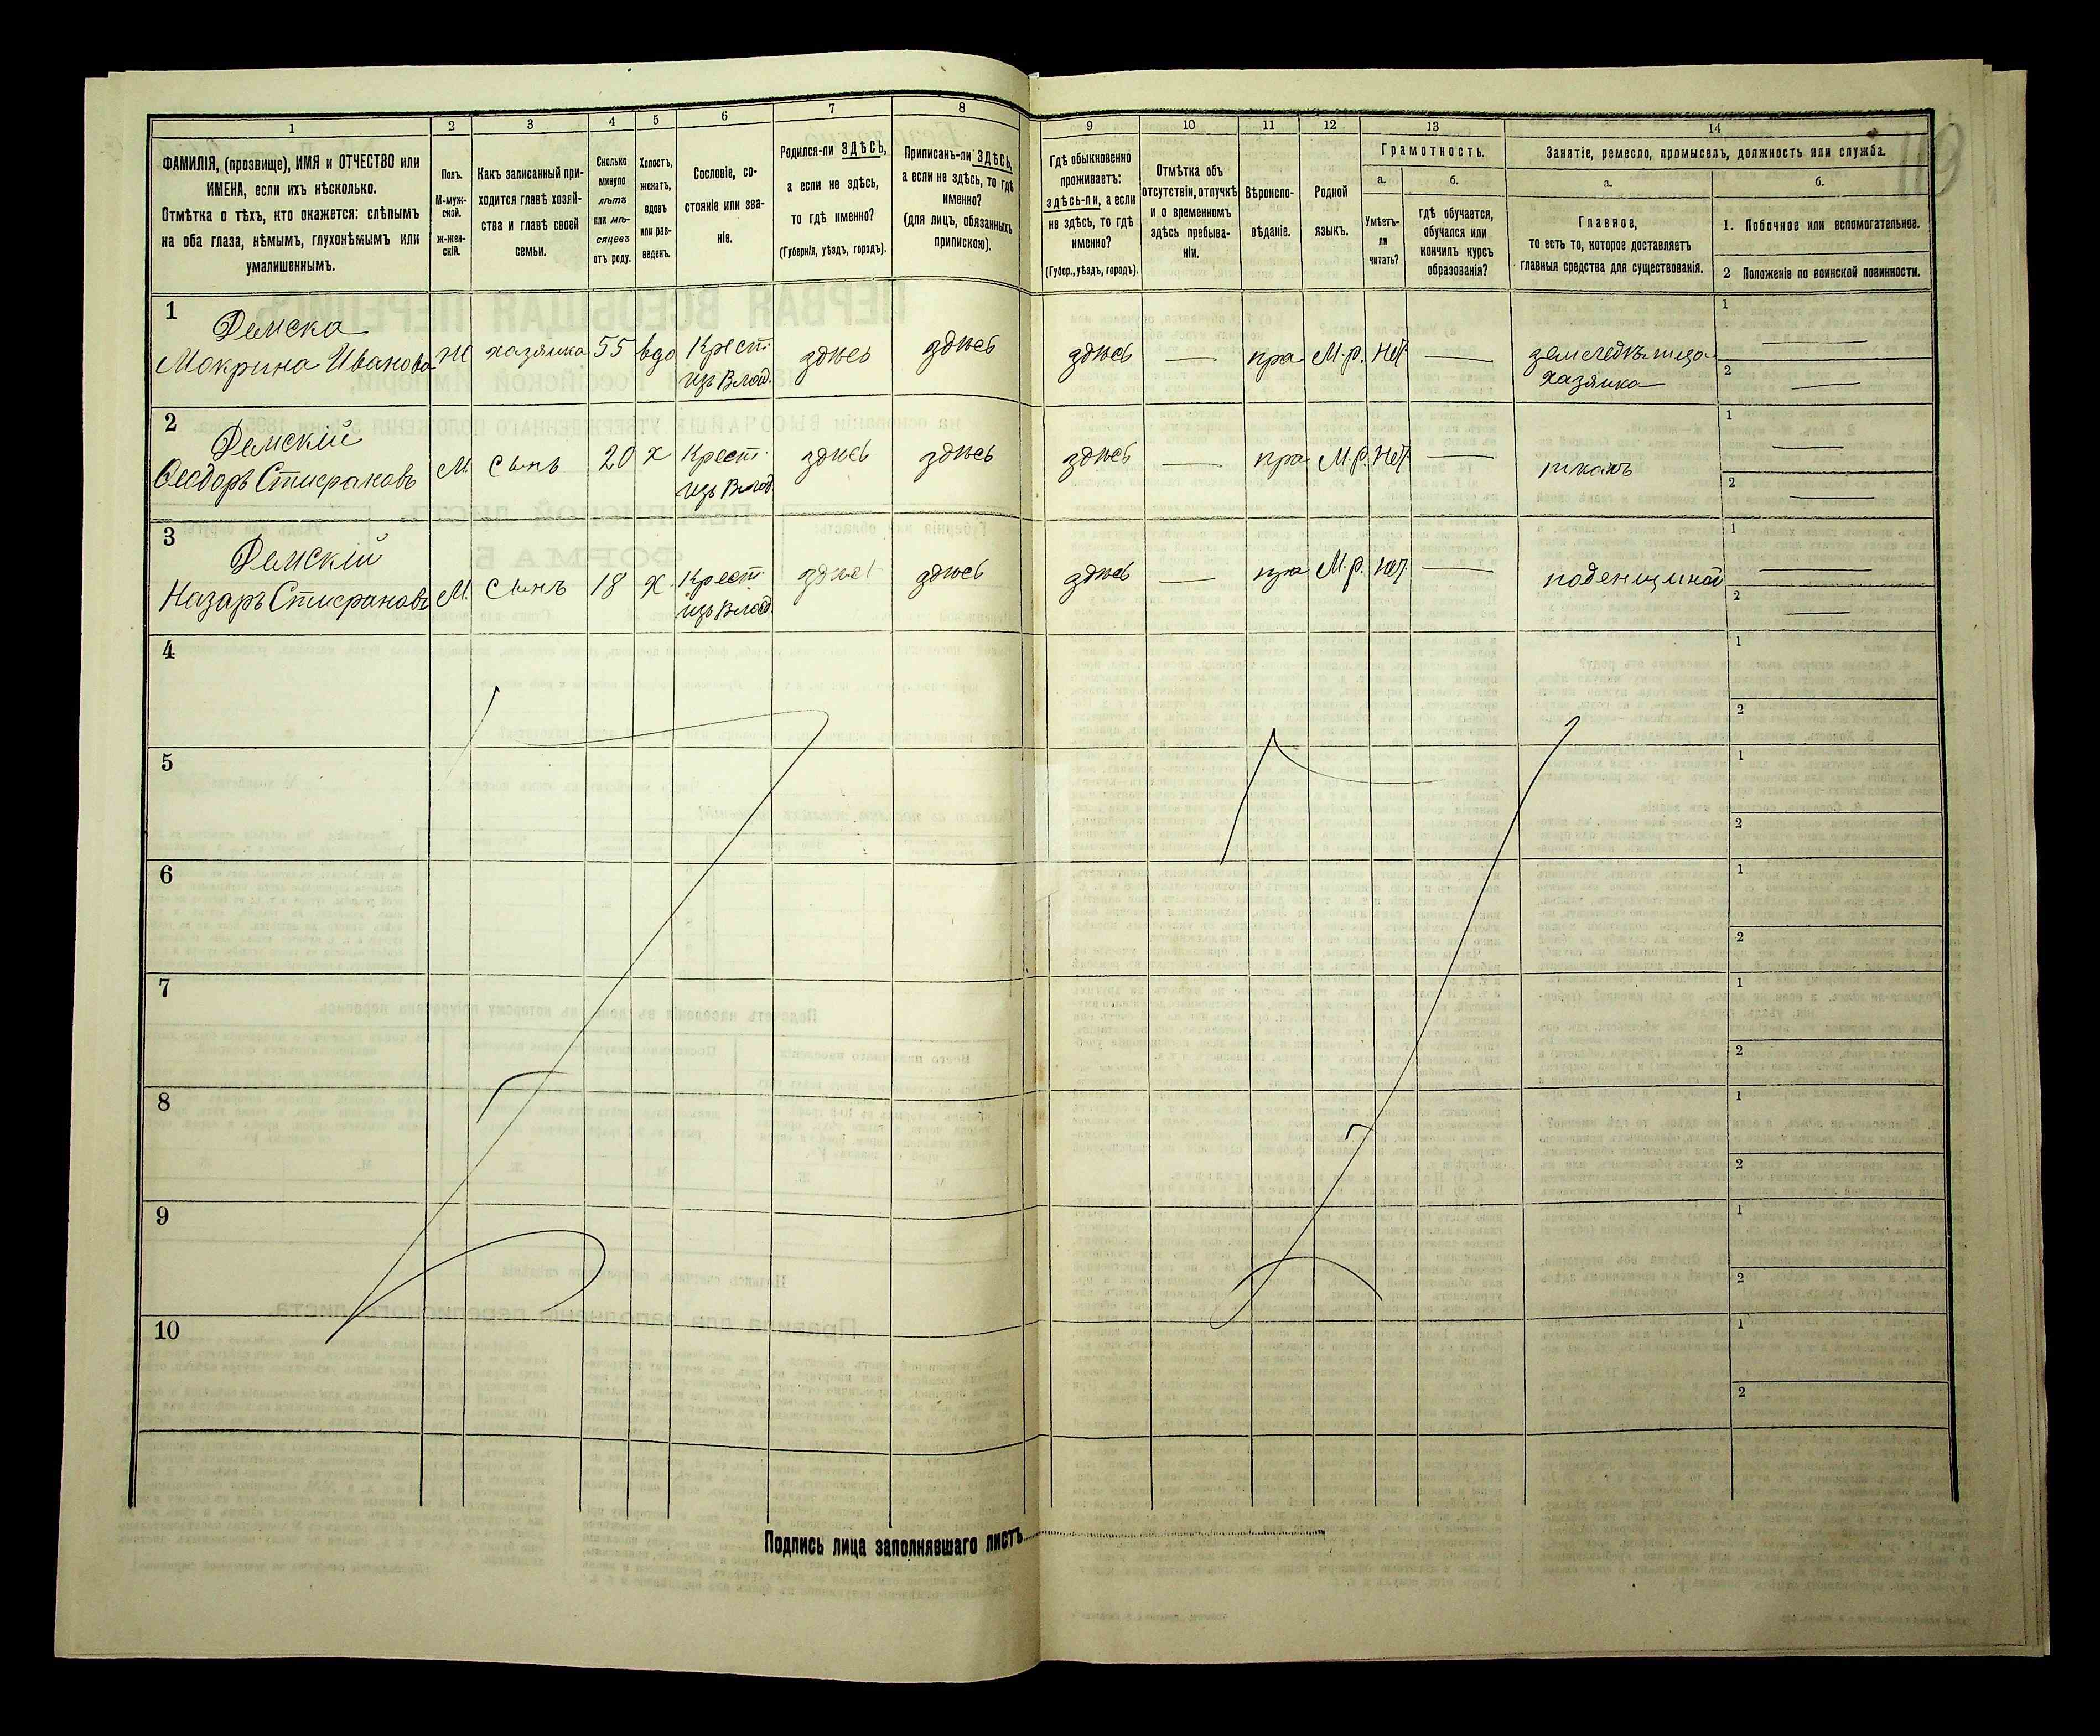 1
2
3
4
5
6
7
8
9
10
11
12
13
14
ФАМИЛІЯ, (прозвище), ИМЯ и ОТЧЕСТВО или
ИМЕНА, если ихъ нѣсколько.
Отмѣтка о тѣхъ, кто окажется: слѣпымъ
на оба глаза, нѣмымъ, глухонѣмымъ или
умалишеннымъ.
Полъ.
М-муж-
ской.
ж-жен-
скій.
Какъ записанный при-
ходится главѣ хозяй-
ства и главѣ своей
семьи.
Сколько
минуло
лѣтъ
или мѣ-
сяцевъ
отъ роду.
Холостъ,
женатъ,
вдовъ
или раз-
веденъ.
Сословіе, со-
стояніе или зва-
ніе.
Родился-ли ЗДѢСЬ,
а если не здѣсь,
то гдѣ именно?
(Губернія, уѣздъ, городъ).
Приписанъ-ли ЗДѢСЬ,
а если не здѣсь, то гдѣ
именно?
(для лицъ, обязанныхъ
припискою).
Гдѣ обыкновенно
проживаетъ:
здѣсь-ли, а если
не здѣсь, то гдѣ
именно?
(Губер., уѣздъ, городъ).
Отмѣтка объ
отсутствіи, отлучкѣ
и о временномъ
здѣсь пребыва-
ніи.
Вѣроиспо-
вѣданіе.
Родной
языкъ.
Грамотность.
а.
Умѣетъ-
ли
читать?
б.
гдѣ обучается,
обучался или
кончилъ курсъ
образованія?
Занятіе, ремесло, промыселъ, должность или служба.
а.
Главное,
то есть то, которое доставляетъ
главныя средства для существованія.
б.
1. Побочное или вспомогательное.
2 Положеніе по воинской повинности.
1
Демска
Мокрина Иванова
Ж
хазяика
55
вдо
Крест.
изъ Влад.
здѣсь
здѣсь
здѣсь
—
пра
М.р.
Нет
—
хазяика
1
—
2
—
2
Демскій
Ѳеодоръ
М.
Сынъ
20
х
Крест.
изъ Влад.
здѣсь
здѣсь
здѣсь
—
пра
М.р.
Нет
—
ткачъ
1
—
2
—
3
Демскій
Назаръ
М.
Сынъ
18
х
Крест.
изъ Влад.
здѣсь
здѣсь
здѣсь
—
пра
М.р.
нет
—
1
—
2
—
4
1
2
5
1
2
6
1
2
7
1
2
8
1
2
9
1
2
10
1
2
Подпись лица заполнявшаго листъ